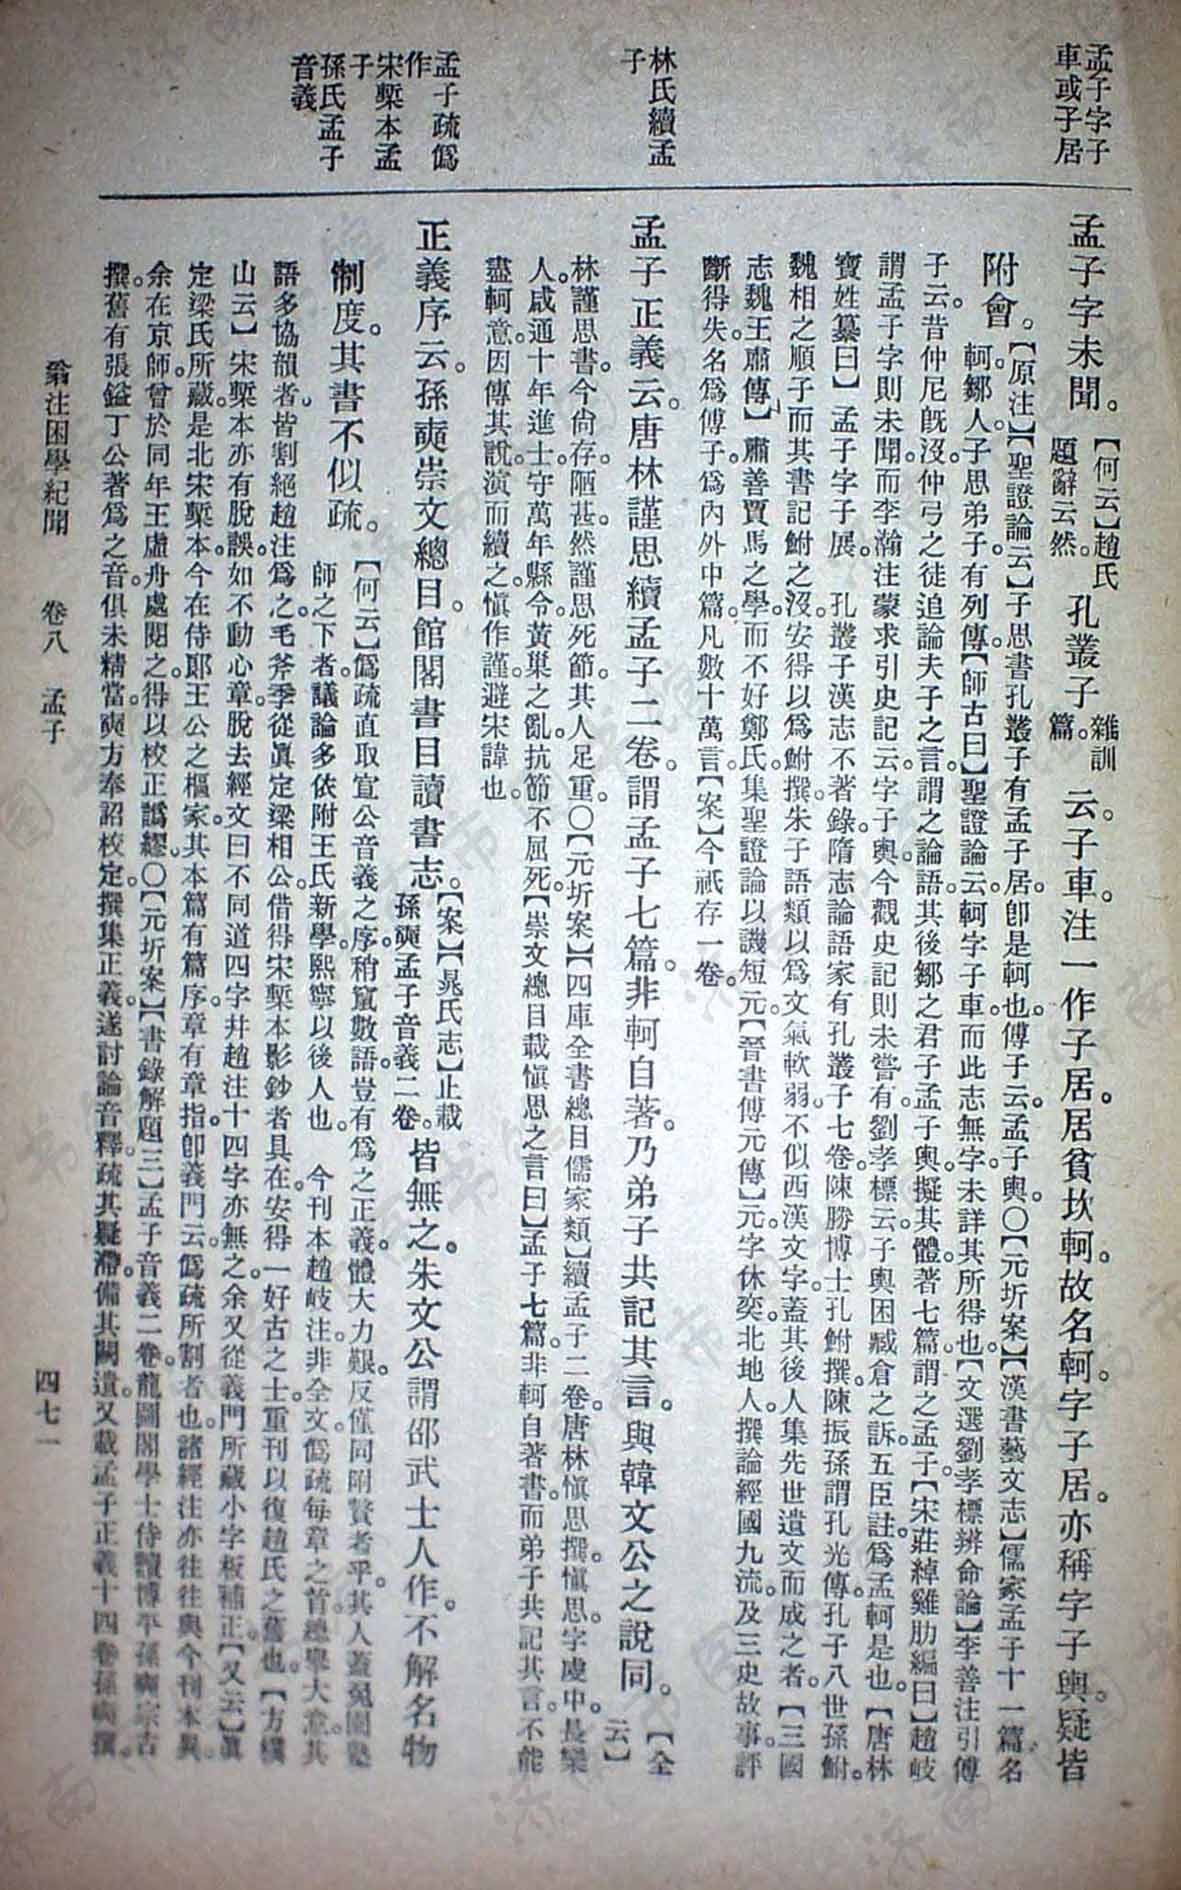 孟子字子
車或子居
林氏續孟
子
孟子疏僞
作
宋槧本孟
子
孫氏孟子
音義
孟子字未聞。【何云】趙氏題辭云然。孔叢子雜訓篇。云子車注一作子居居貧坎軻故名軻字子居亦稱字子輿疑皆
附會。【原注】【聖證論云】子思書孔叢子有孟子居卽是軻也傅子云孟子輿〇【元圻案】【漢書藝文志】儒家孟子十一篇名
軻鄒人子思弟子有列傳【師古曰】聖證論云軻字子車而此志無字未詳其所得也【文選劉孝標辨命論】李善注引傅
子云昔仲尼旣沒仲弓之徒追論夫子之言謂之論語其後鄒之君子孟子輿擬其體著七篇謂之孟子【宋莊綽雞肋編曰】趙岐
謂孟子字則未聞而李瀚注蒙求引史記云字子輿今觀史記則未嘗有劉孝標云子輿困臧倉之訴五臣註爲孟軻是也【唐林
寶姓纂曰】孟子字子展 孔叢子漢志不著錄隋志論語家有孔叢子七卷陳勝博士孔鮒撰陳振孫謂孔光傳孔子八世孫鮒
魏相之順子而其書記鮒之沒安得以爲鮒撰朱子語類以爲文氣軟弱不似西漢文字蓋其後人集先世遺文而成之者【三國
志魏王肅傳】肅善賈馬之學而不好鄭氏集聖證論以譏短元【晉書傅元傳】元字休奕北地人撰論經國九流及三史故事評
斷得失名爲傅子爲內外中篇凡數十萬言【案】今祇存一卷
孟子正義云唐林謹思續孟子二卷謂孟子七篇非軻自著乃弟子共記其言與韓文公之說同。【全云】
林謹思書今尙存陋甚然謹思死節其人足重〇【元圻案】【四庫全書總目儒家類】續孟子二卷唐林愼思撰愼思字虔中長樂
人咸通十年進士守萬年縣令黃巢之亂抗節不屈死【崇文總目載愼思之言曰】孟子七篇非軻自著書而弟子共記其言不能
盡軻意因傳其說演而續之愼作謹避宋諱也
正義序云孫奭崇文總目館閣書目讀書志。【案】【晁氏志】止載孫奭孟子音義二卷。皆無之朱文公謂邵武士人作不解名物
制度其書不似疏。【何云】僞疏直取宣公音義之序稍竄數語豈有爲之正義體大力艱反僅同附贅者乎其人蓋兔園塾
師之下者議論多依附王氏新學熙寧以後人也 今刊本趙岐注非全文僞疏每章之首總舉大意其
語多協韻者皆割絕趙注爲之毛斧季從眞定梁相公借得宋槧本影鈔者具在安得一好古之士重刊以復趙氏之舊也【方樸
山云】宋槧本亦有脫誤如不動心章脫去經文曰不同道四字幷趙注十四字亦無之余又從義門所藏小字板補正【又云】眞
定梁氏所藏是北宋槧本今在侍郎王公之樞家其本篇有篇序章有章指卽義門云僞疏所割者也諸經注亦往往與今刊本異
余在京師曾於同年王虛舟處閱之得以校正譌繆〇【元圻案】【書錄解題三】孟子音義二卷龍圖閣學士侍讀博平孫奭宗古
撰舊有張鎰丁公著爲之音俱未精當奭方奉詔校定撰集正義遂討論音釋疏其疑滯備其闕遺又載孟子正義十四卷孫奭撰
翁注困學紀聞 卷八 孟子 四七一